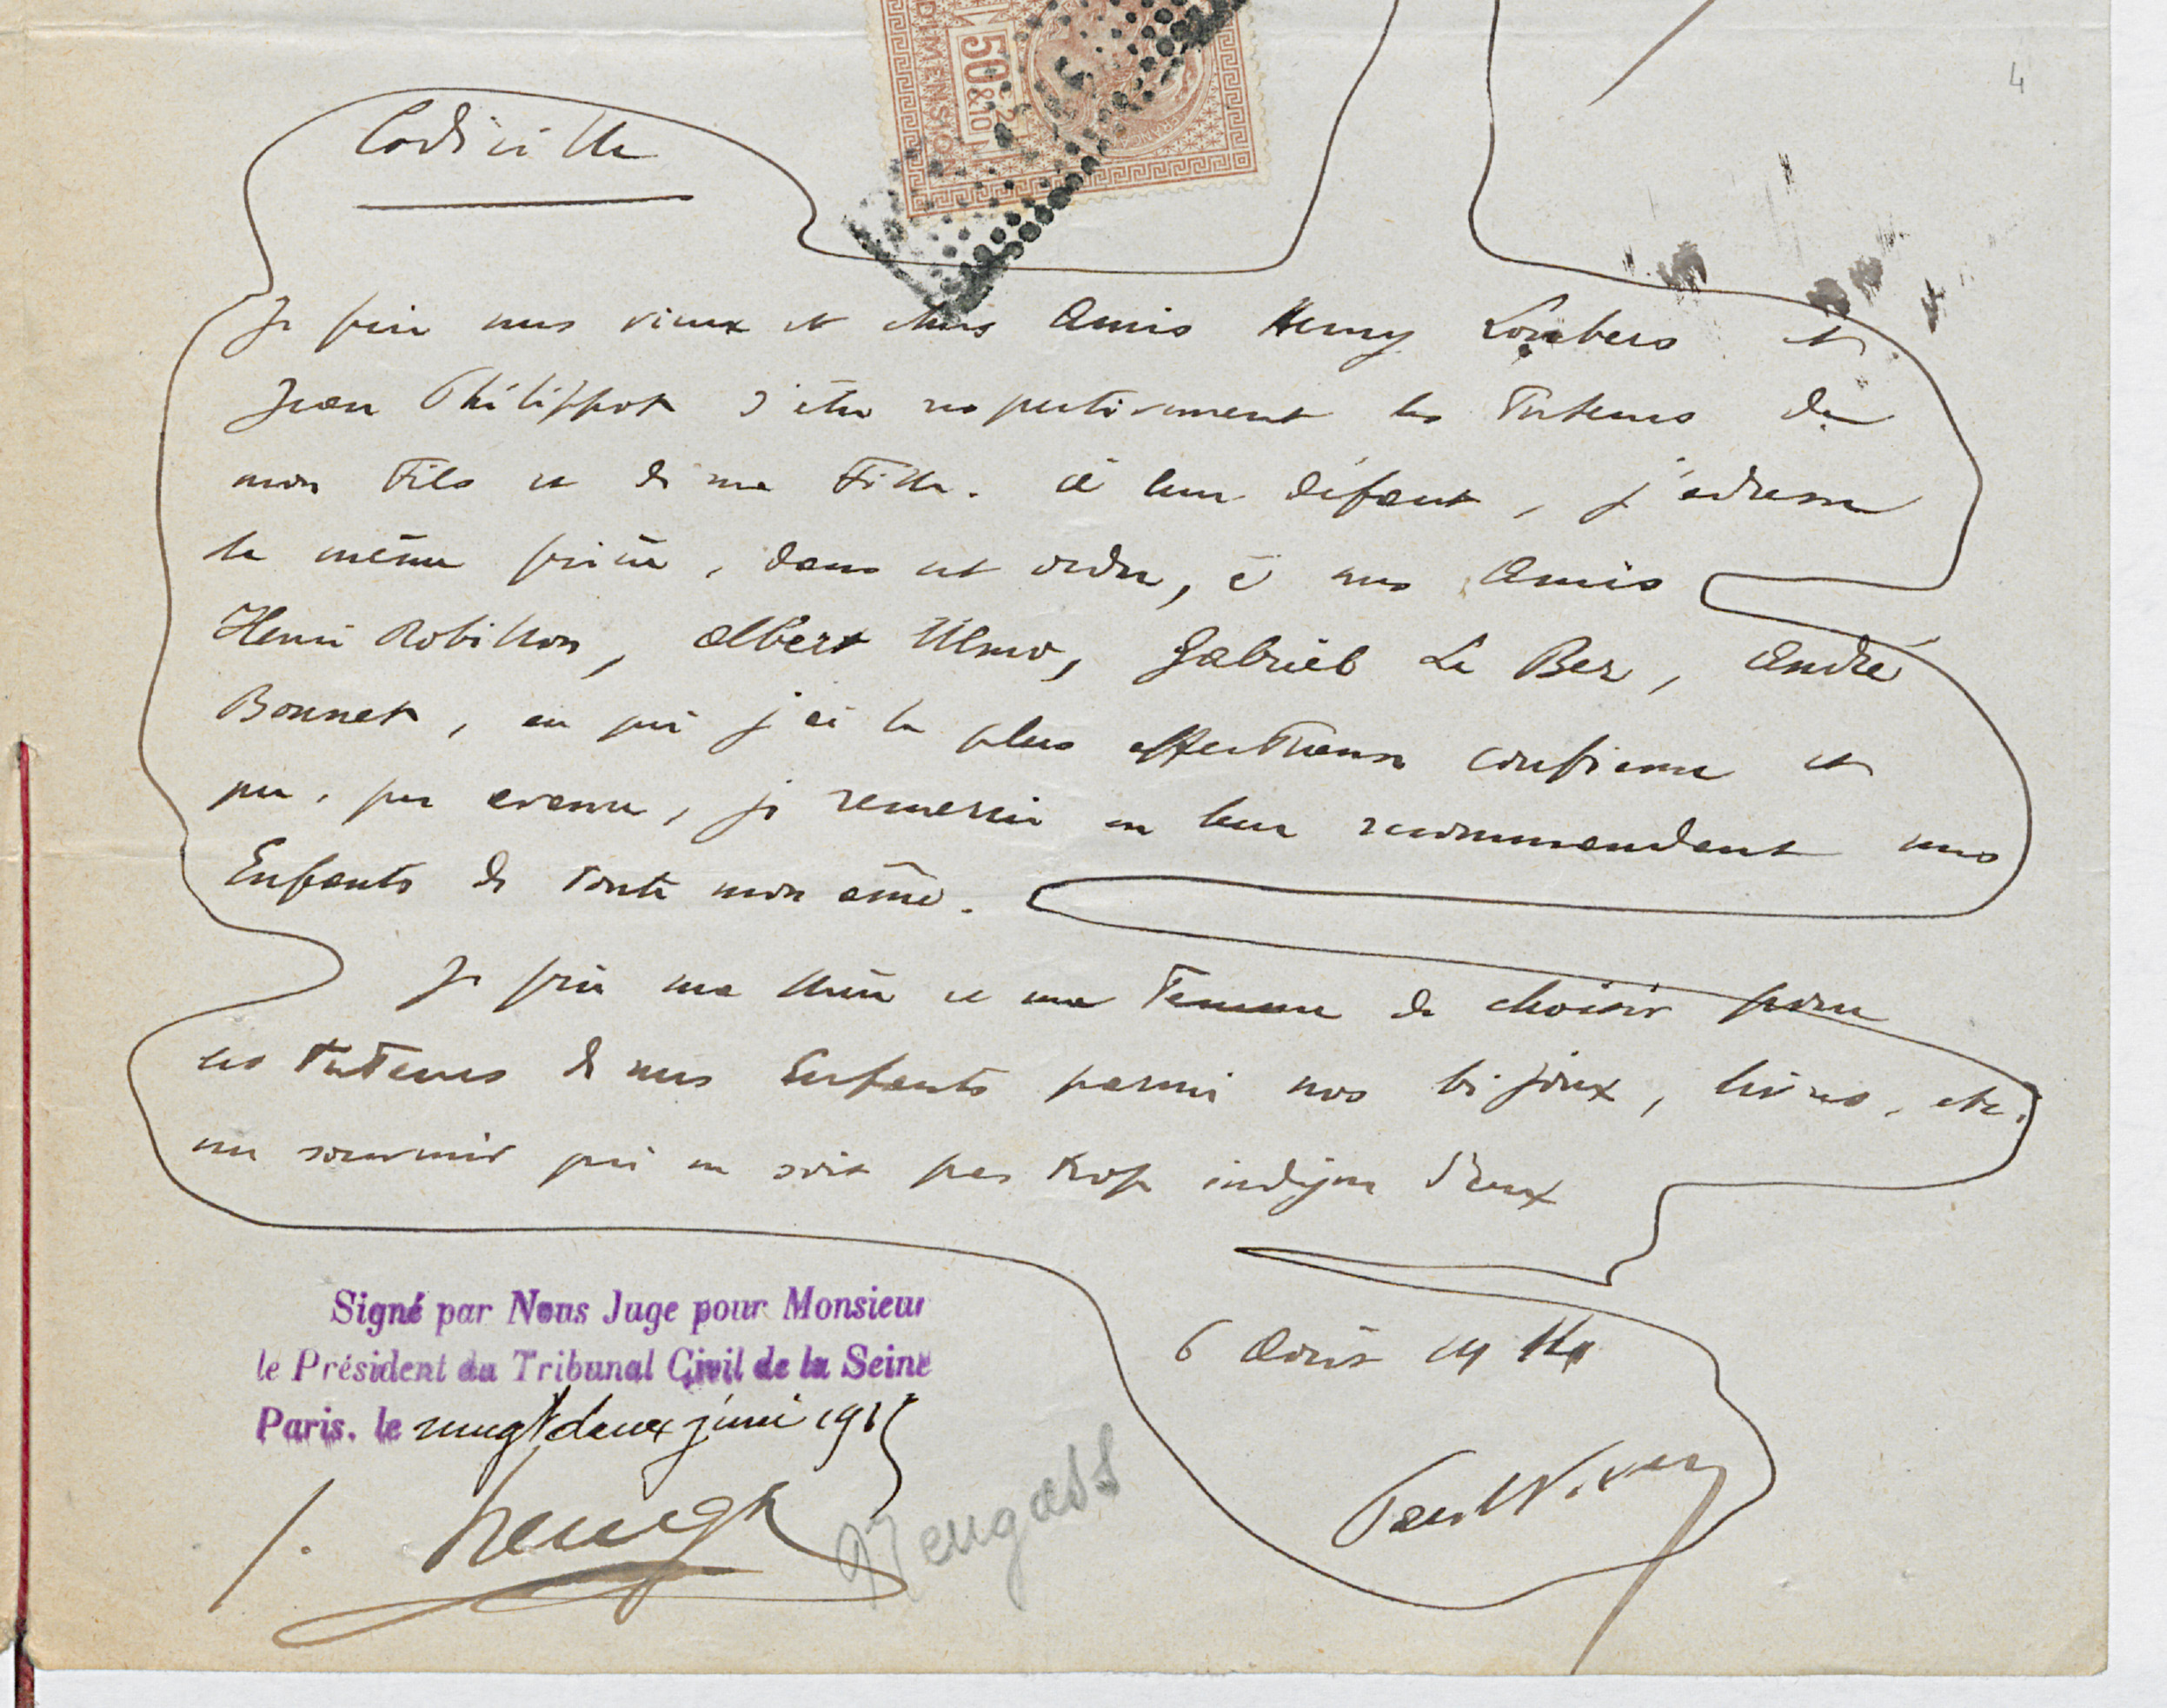 4
DIMENSION
50c
2/10
Codicille
Je prie mes vieux et chers Amis Henry Loubers et
Jean Philippot d'être respectivement les Tuteurs de
mon Fils et de ma Fille. à leur défaut, j'adresse
la même prière, dans cet ordre, à mes Amis
Henri Robillon, Albert Ulmo, Gabriel Le Ber, André
Bonnet, en qui j'ai la plus affectueuse confiance et
que, par avance, je remercie en leur recommandant mes
Enfants de toute mon âme.
Je prie ma Mère et ma Femme de choisir pour
les Tuteurs de mes Enfants parmi nos bijoux, livres, etc.
un souvenir qui ne soit pas trop indigne d'eux
6 Août 1914
Signé par Nous Juge pour Monsieur
le Président du Tribunal Civil de la Seine
Paris, le vingt deux juin 1915